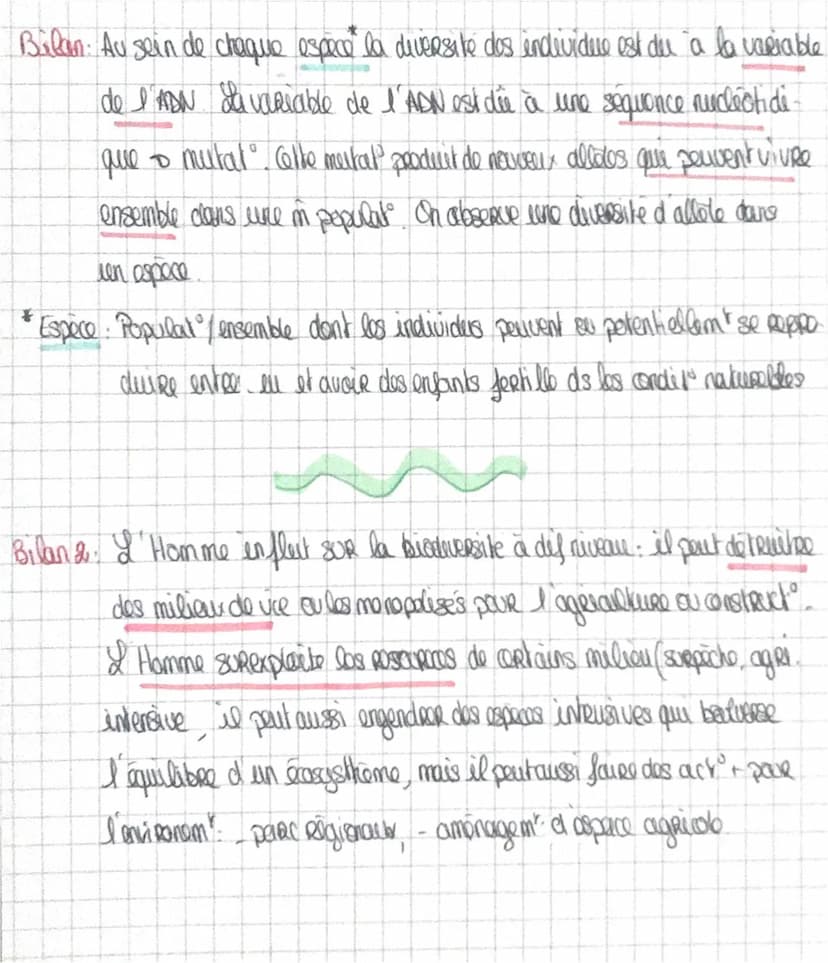 Bilan : Au sein de chaque espèce* la diversité des individue est du a la variable
de l'ADN. La variable de l'ADN est dûe à une séquence nucléotidi-
que → mutat°. Cette mutat° produit de nouveux allèles qui peuvent vivre
ensemble dans une m̂ populat°. On observe une diversité d'allèle dans
un espèce.
* Espèce : Populat°/ensemble dont les individus peuvent ou potentiellemt se repro
duire entre eu et avoir des enfants fertille ds les condit° naturelles
Bilan 2 : L'Homme influt sur la biodiversité à dif niveau : il peut détruitre
des milieu de vie ou les monopolisés pour l'agriculture ou construct°.
L'Homme surexploite les ressources de certains milieu (surpêche, agri.
intensive, il peut aussi engendrer des espèces intrusives qui
l'équilibre d'un écosysthème, mais il peut aussi faire des act° + pour
l'environemt : - parc régionaux, - aménagemt d'espace agricole